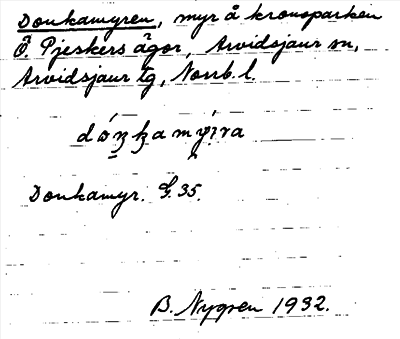 Donkamyren, myr å kronoparken
Ö. Pjeskers ägor, Arvidsjaur sn,
Arvidsjaur lg, Norrb. l.
Donkamyr. G. 35.
B. Nygren 1932.